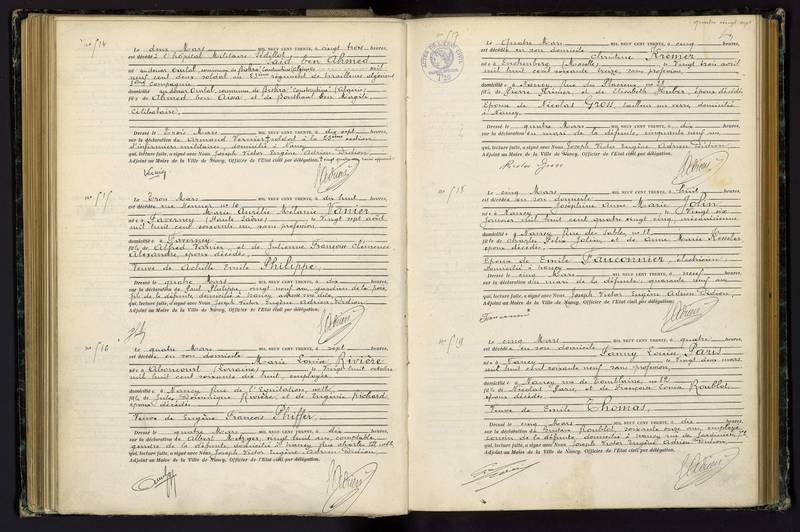 quatre vingt sept
No 514
Le deux Mars MIL NEUF CENT TRENTE, à vingt trois heures,
est décédé à l'hôpital Militaire Sédillot
Saïd ben Ahmed
né au douar Oultal, commune de Biskra
neuf cent deux soldat au régiment de tirailleurs algériens
compagnie
domicilié au douar Oultal, commune de Biskra (Algérie)
fils de Ahmed ben Aïssa, et de
Célibataire,
Dressé le trois Mars MIL NEUF CENT TRENTE, à dix sept heures,
sur la déclaration de Armand Vernier soldat à la section
d'infirmiers militaires, domicilié à Nancy
qui, lecture faite, a signé avec Nous Joseph Victor Eugène Adrien Didion,
Adjoint au Maire de la Ville de Nancy, Officier de l'Etat civil par délégation.
No 515
Le trois Mars MIL NEUF CENT TRENTE, à dix huit heures,
est décédée rue no 10
Marie Aurélie Mélanie Vanier
née à Faverney (Haute Saône) le vingt sept avril
mil huit cent soixante un sans profession,
domiciliée à Faverney
fille de Alfred Vanier, et de Julienne Françoise Clémence
Alexandre, époux décédés,
Veuve de Achille Emile Philippe,
Dressé le quatre Mars MIL NEUF CENT TRENTE, à dix heures,
sur la déclaration de Paul Philippe, vingt neuf ans, gardien de la paix,
fils de la défunte, domicilié à Nancy,
qui, lecture faite, a signé avec Nous Joseph Victor Eugène Adrien Didion,
Adjoint au Maire de la Ville de Nancy, Officier de l'Etat civil par délégation.
No 516
Le quatre Mars MIL NEUF CENT TRENTE, à sept heures,
est décédée en son domicile
Marie Louise Rivière
née à Aboncourt (Lorraine) le vingt huit octobre
mil huit cent soixante dix huit, employée
domiciliée à Nancy rue de l'Equitation,
fille de Jules Dominique Rivière, et de Eugénie Richard,
époux décédés
Veuve de Eugène François Phiffer,
Dressé le quatre Mars MIL NEUF CENT TRENTE, à dix heures,
sur la déclaration de Albert Metzger, vingt huit ans, comptable,
gendre de la défunte, domicilié à Nancy,
qui, lecture faite, a signé avec Nous Joseph Victor Eugène Adrien Didion,
Adjoint au Maire de la Ville de Nancy, Officier de l'Etat civil par délégation.
No 517
Le quatre Mars MIL NEUF CENT TRENTE, à cinq heures,
est décédée en son domicile
Christine Kremer
née à (Moselle) le vingt trois avril
mil huit cent soixante treize, sans profession,
domiciliée à Nancy,
fille de Pierre Kremer et de Elisabeth Houber, époux décédés
Epouse de Nicolas Gross, tailleur sur verre, domicilié
à Nancy
Dressé le quatre Mars MIL NEUF CENT TRENTE, à dix heures,
sur la déclaration du mari de la défunte, cinquante neuf ans
qui, lecture faite, a signé avec Nous Joseph Victor Eugène Adrien Didion,
Adjoint au Maire de la Ville de Nancy, Officier de l'Etat civil par délégation.
Nicolas Gross
No 518
Le cinq Mars MIL NEUF CENT TRENTE, à huit heures,
est décédée en son domicile
Joséphine Anne Marie Jolin
née à Nancy le vingt six
janvier mil huit cent quatre vingt cinq, mécanicienne
domiciliée à Nancy rue des Sables,
fille de Charles Félix Jolin, et de Anne Marie
époux décédés,
Epouse de Emile Fauconnier, électricien,
domicilié à Nancy
Dressé le cinq Mars MIL NEUF CENT TRENTE, à neuf heures,
sur la déclaration du mari de la défunte, quarante neuf ans
qui, lecture faite, a signé avec Nous Joseph Victor Eugène Adrien Didion,
Adjoint au Maire de la Ville de Nancy, Officier de l'Etat civil par délégation.
No 519
Le cinq Mars MIL NEUF CENT TRENTE, à quatre heures,
est décédée en son domicile
Fanny Louise Paris
née à Nancy le vingt deux mars
mil huit cent soixante neuf sans profession,
domiciliée à Nancy rue de Tomblaine,
fille de Nicolas Paris, et de Françoise Louise Roublot,
époux décédés
Veuve de Emile Thomas,
Dressé le cinq Mars MIL NEUF CENT TRENTE, à dix heures,
sur la déclaration de Gustave Roublot, soixante onze ans, employé,
cousin de la défunte, domicilié à Nancy
qui, lecture faite, a signé avec Nous Joseph Victor Eugène Adrien Didion,
Adjoint au Maire de la Ville de Nancy, Officier de l'Etat civil par délégation.